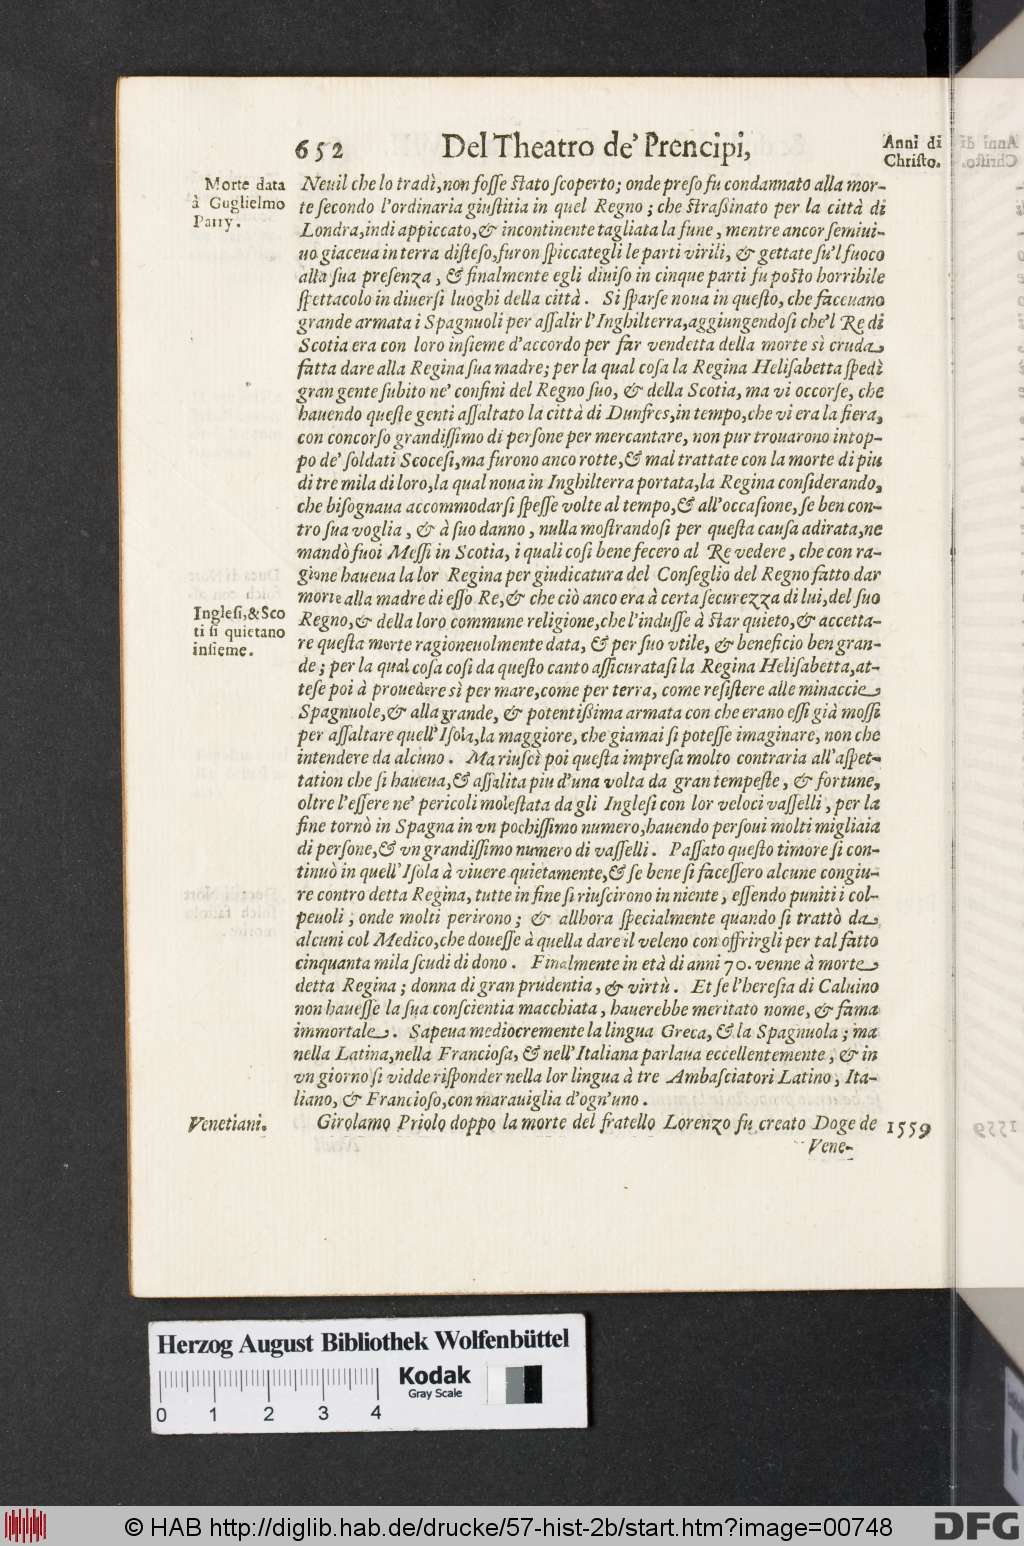 652 Del Theatro de' Prencipi,
Anni di
Christo.
Morte data
à Guglielmo
Parry.
Neuil che lo tradì, non fosse stato scoperto; onde preso fu condannato alla mor-
te secondo l'ordinaria giustitia in quel Regno; che straßinato per la città di
Londra, indi appiccato, & incontinente tagliata la fune, mentre ancor semiui-
uo giaceua in terra disteso, furon spiccategli le parti virili, & gettate su'l fuoco
alla sua presenza, & finalmente egli diuiso in cinque parti fu posto horribile
spettacolo in diuersi luoghi della città. Si sparse noua in questo, che faceuano
grande armata i Spagnuoli per assalir l'Inghilterra, aggiungendosi che'l Re di
Scotia era con loro insieme d'accordo per far vendetta della morte sì cruda
fatta dare alla Regina sua madre; per la qual cosa la Regina Helisabetta spedì
gran gente subito ne' confini del Regno suo, & della Scotia, ma vi occorse, che
hauendo queste genti assaltato la città di Dunfres, in tempo, che vi era la fiera,
con concorso grandissimo di persone per mercantare, non pur trouarono intop-
po de' soldati Scocesi, ma furono anco rotte, & mal trattate con la morte di piu
di tre mila di loro, la qual noua in Inghilterra portata, la Regina considerando,
che bisognaua accommodarsi spesse volte al tempo, & all'occasione, se ben con-
tro sua voglia, & à suo danno, nulla mostrandosi per questa causa adirata, ne
mandò suoi Messi in Scotia, i quali cosi bene fecero al Re vedere, che con ra-
gione haueua la lor Regina per giudicatura del Conseglio del Regno fatto dar
morte alla madre di esso Re, & che ciò anco era à certa securezza di lui, del suo
Inglesi, & Sco
ti si quietano
insieme.
Regno, & della loro commune religione, che l'indusse à star quieto, & accetta-
re questa morte ragioneuolmente data, & per suo vtile, & beneficio ben gran-
de; per la qual cosa cosi da questo canto assicuratasi la Regina Helisabetta, at-
tese poi à prouedere sì per mare, come per terra, come resistere alle minaccie
Spagnuole, & alla grande, & potentißima armata con che erano essi già mossi
per assaltare quell'Isola, la maggiore, che giamai si potesse imaginare, non che
intendere da alcuno. Ma riuscì poi questa impresa molto contraria all'aspet-
tation che si haueua, & assalita piu d'una volta da gran tempeste, & fortune,
oltre l'essere ne' pericoli molestata dagli Inglesi con lor veloci vasselli, per la
fine tornò in Spagna in vn pochissimo numero, hauendo persoui molti migliaia
di persone, & vn grandissimo numero di vasselli. Passato questo timore si con-
tinuò in quell'Isola à viuere quietamente, & se bene si facessero alcune congiu-
re contro detta Regina, tutte in fine si riuscirono in niente, essendo puniti i col-
peuoli, onde molti perirono; & allhora specialmente quando si trattò da
alcuni col Medico, che douesse à quella dare il veleno con offrirgli per tal fatto
cinquanta mila scudi di dono. Finalmente in età di anni 70. venne à morte
detta Regina; donna di gran prudentia, & virtù. Et se l'heresia di Caluino
non hauesse la sua conscientia macchiata, hauerebbe meritato nome, & fama
immortale. Sapeua mediocremente la lingua Greca, & la Spagnuola; ma
nella Latina, nella Franciosa, & nell'Italiana parlaua eccellentemente, & in
vn giorno si vidde risponder nella lor lingua à tre Ambasciatori Latino, Ita-
liano, & Francioso, con marauiglia d'ogn'uno.
Venetiani. Girolamo Priolo doppo la morte del fratello Lorenzo fu creato Doge de 1559
Vene-
Herzog August Bibliothek Wolfenbüttel
Kodak
Gray Scale
0 1 2 3 4
© HAB http://diglib.hab.de/drucke/57-hist-2b/start.htm?image=00748
DFG